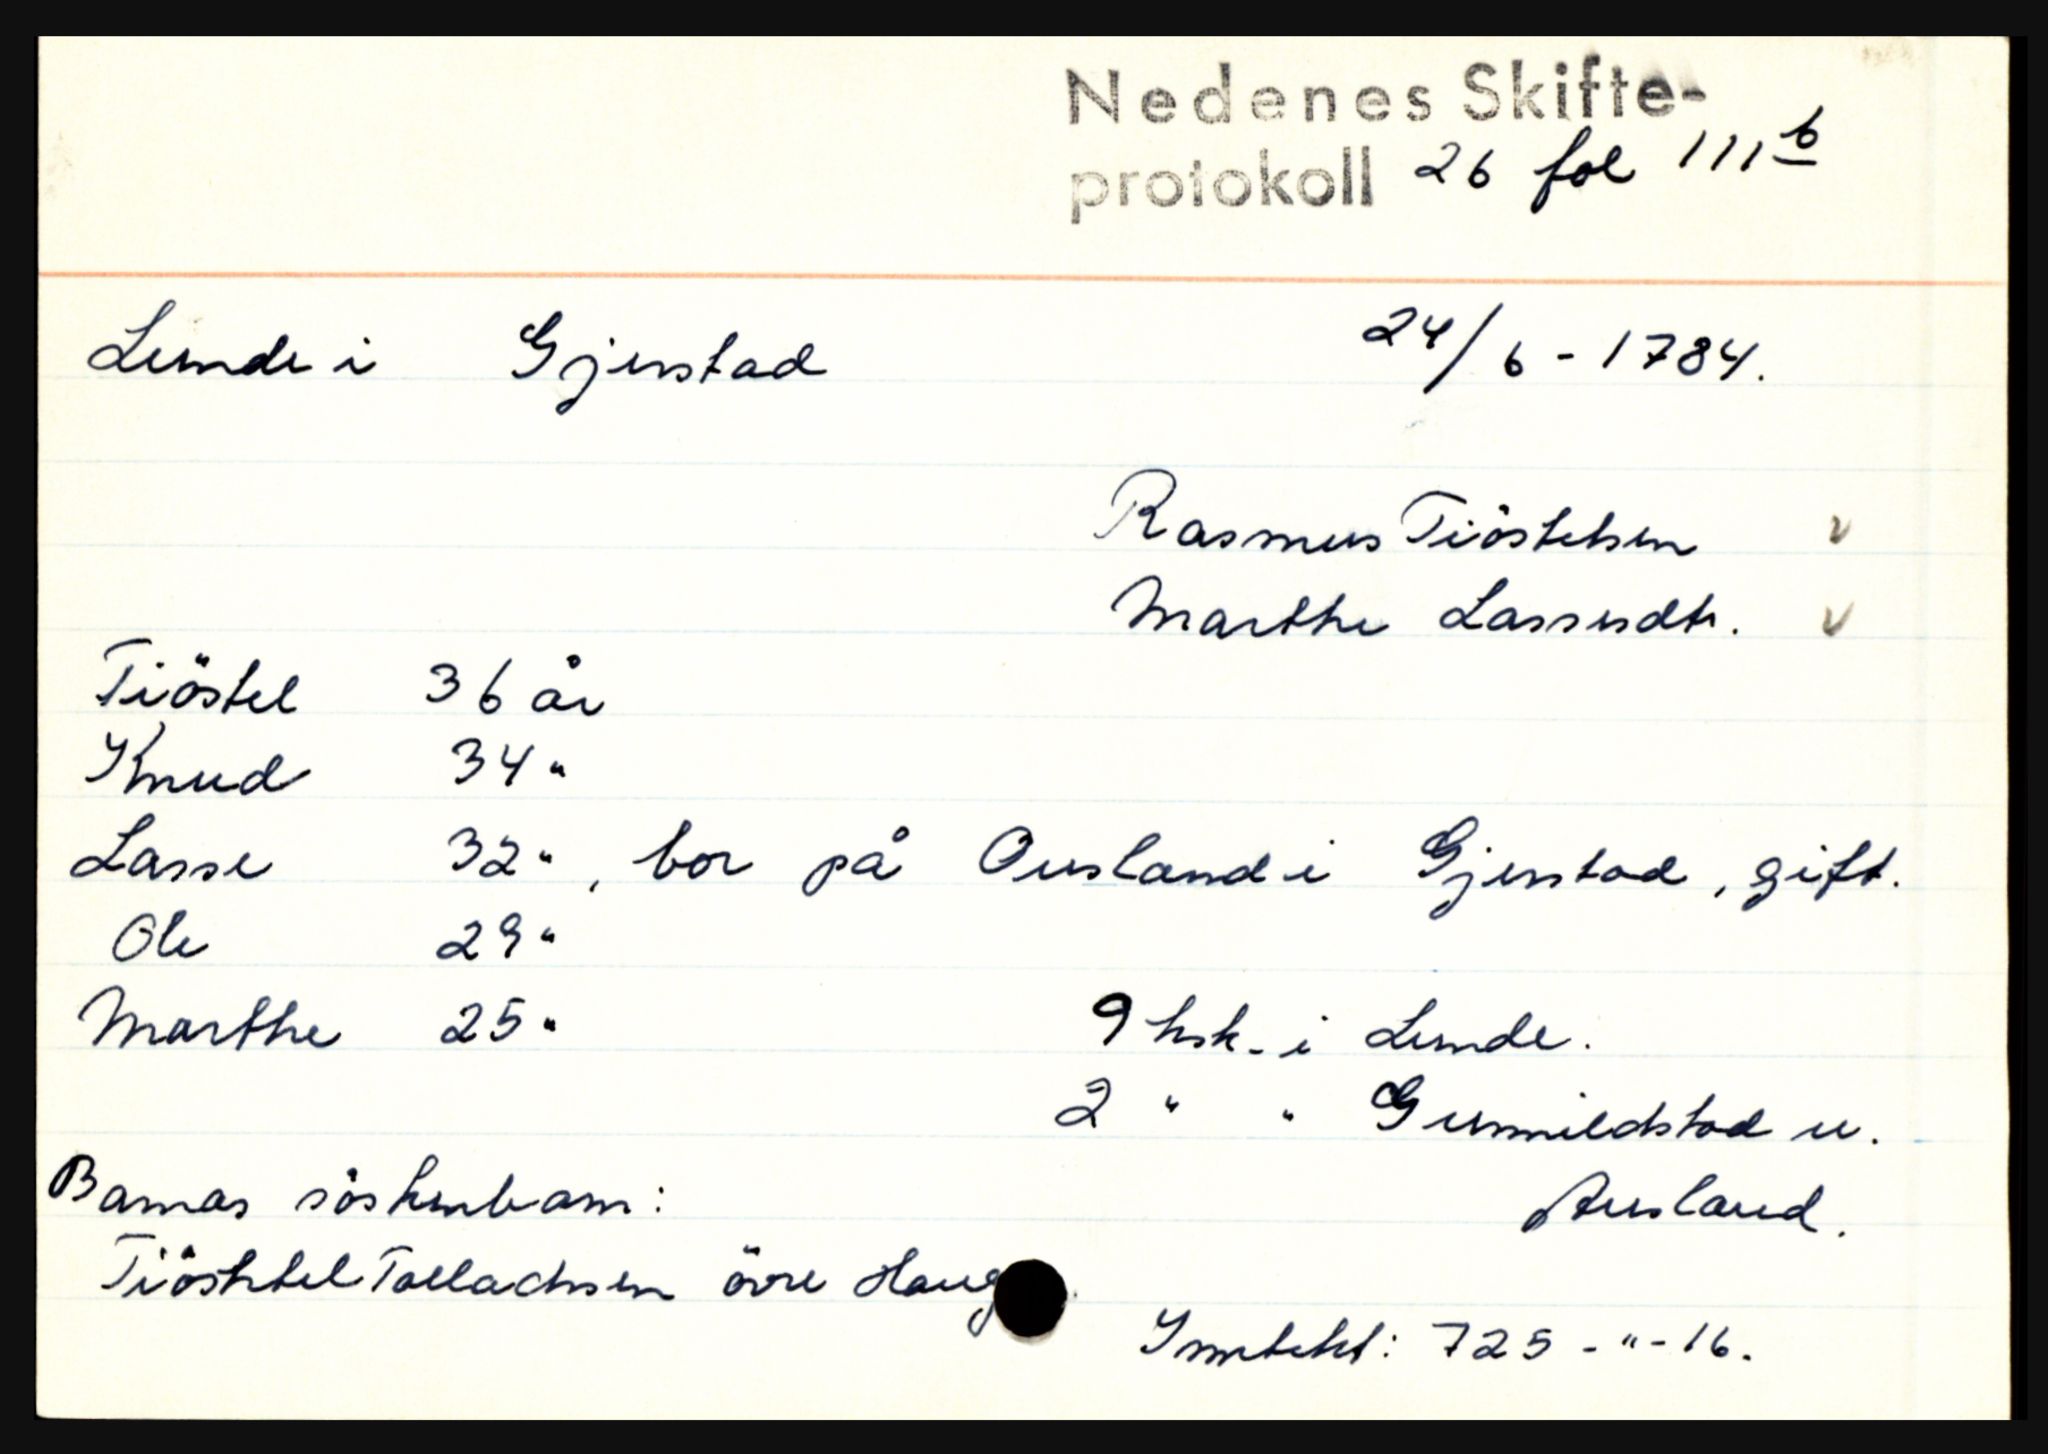 Nedenes Skifte-
protokoll 26 fol 111 b
Lunde i Gjerstad 24/6 - 1784.
Rasmus Tiöstelsen v
Marthe Lassesdtr. v
Tiöstel 36 år
Knud 34 "
Lasse 32 ", bor på Ousland i Gjerstad, gift.
Ole 29 "
Marthe 25 "
9 hsk. i Lunde.
2 " " Gunnildstad u.
Ausland.
Barnas söskenbarn:
Tiöstel Tallachsen övre Haug
Inntekt: 725 - " - 16.